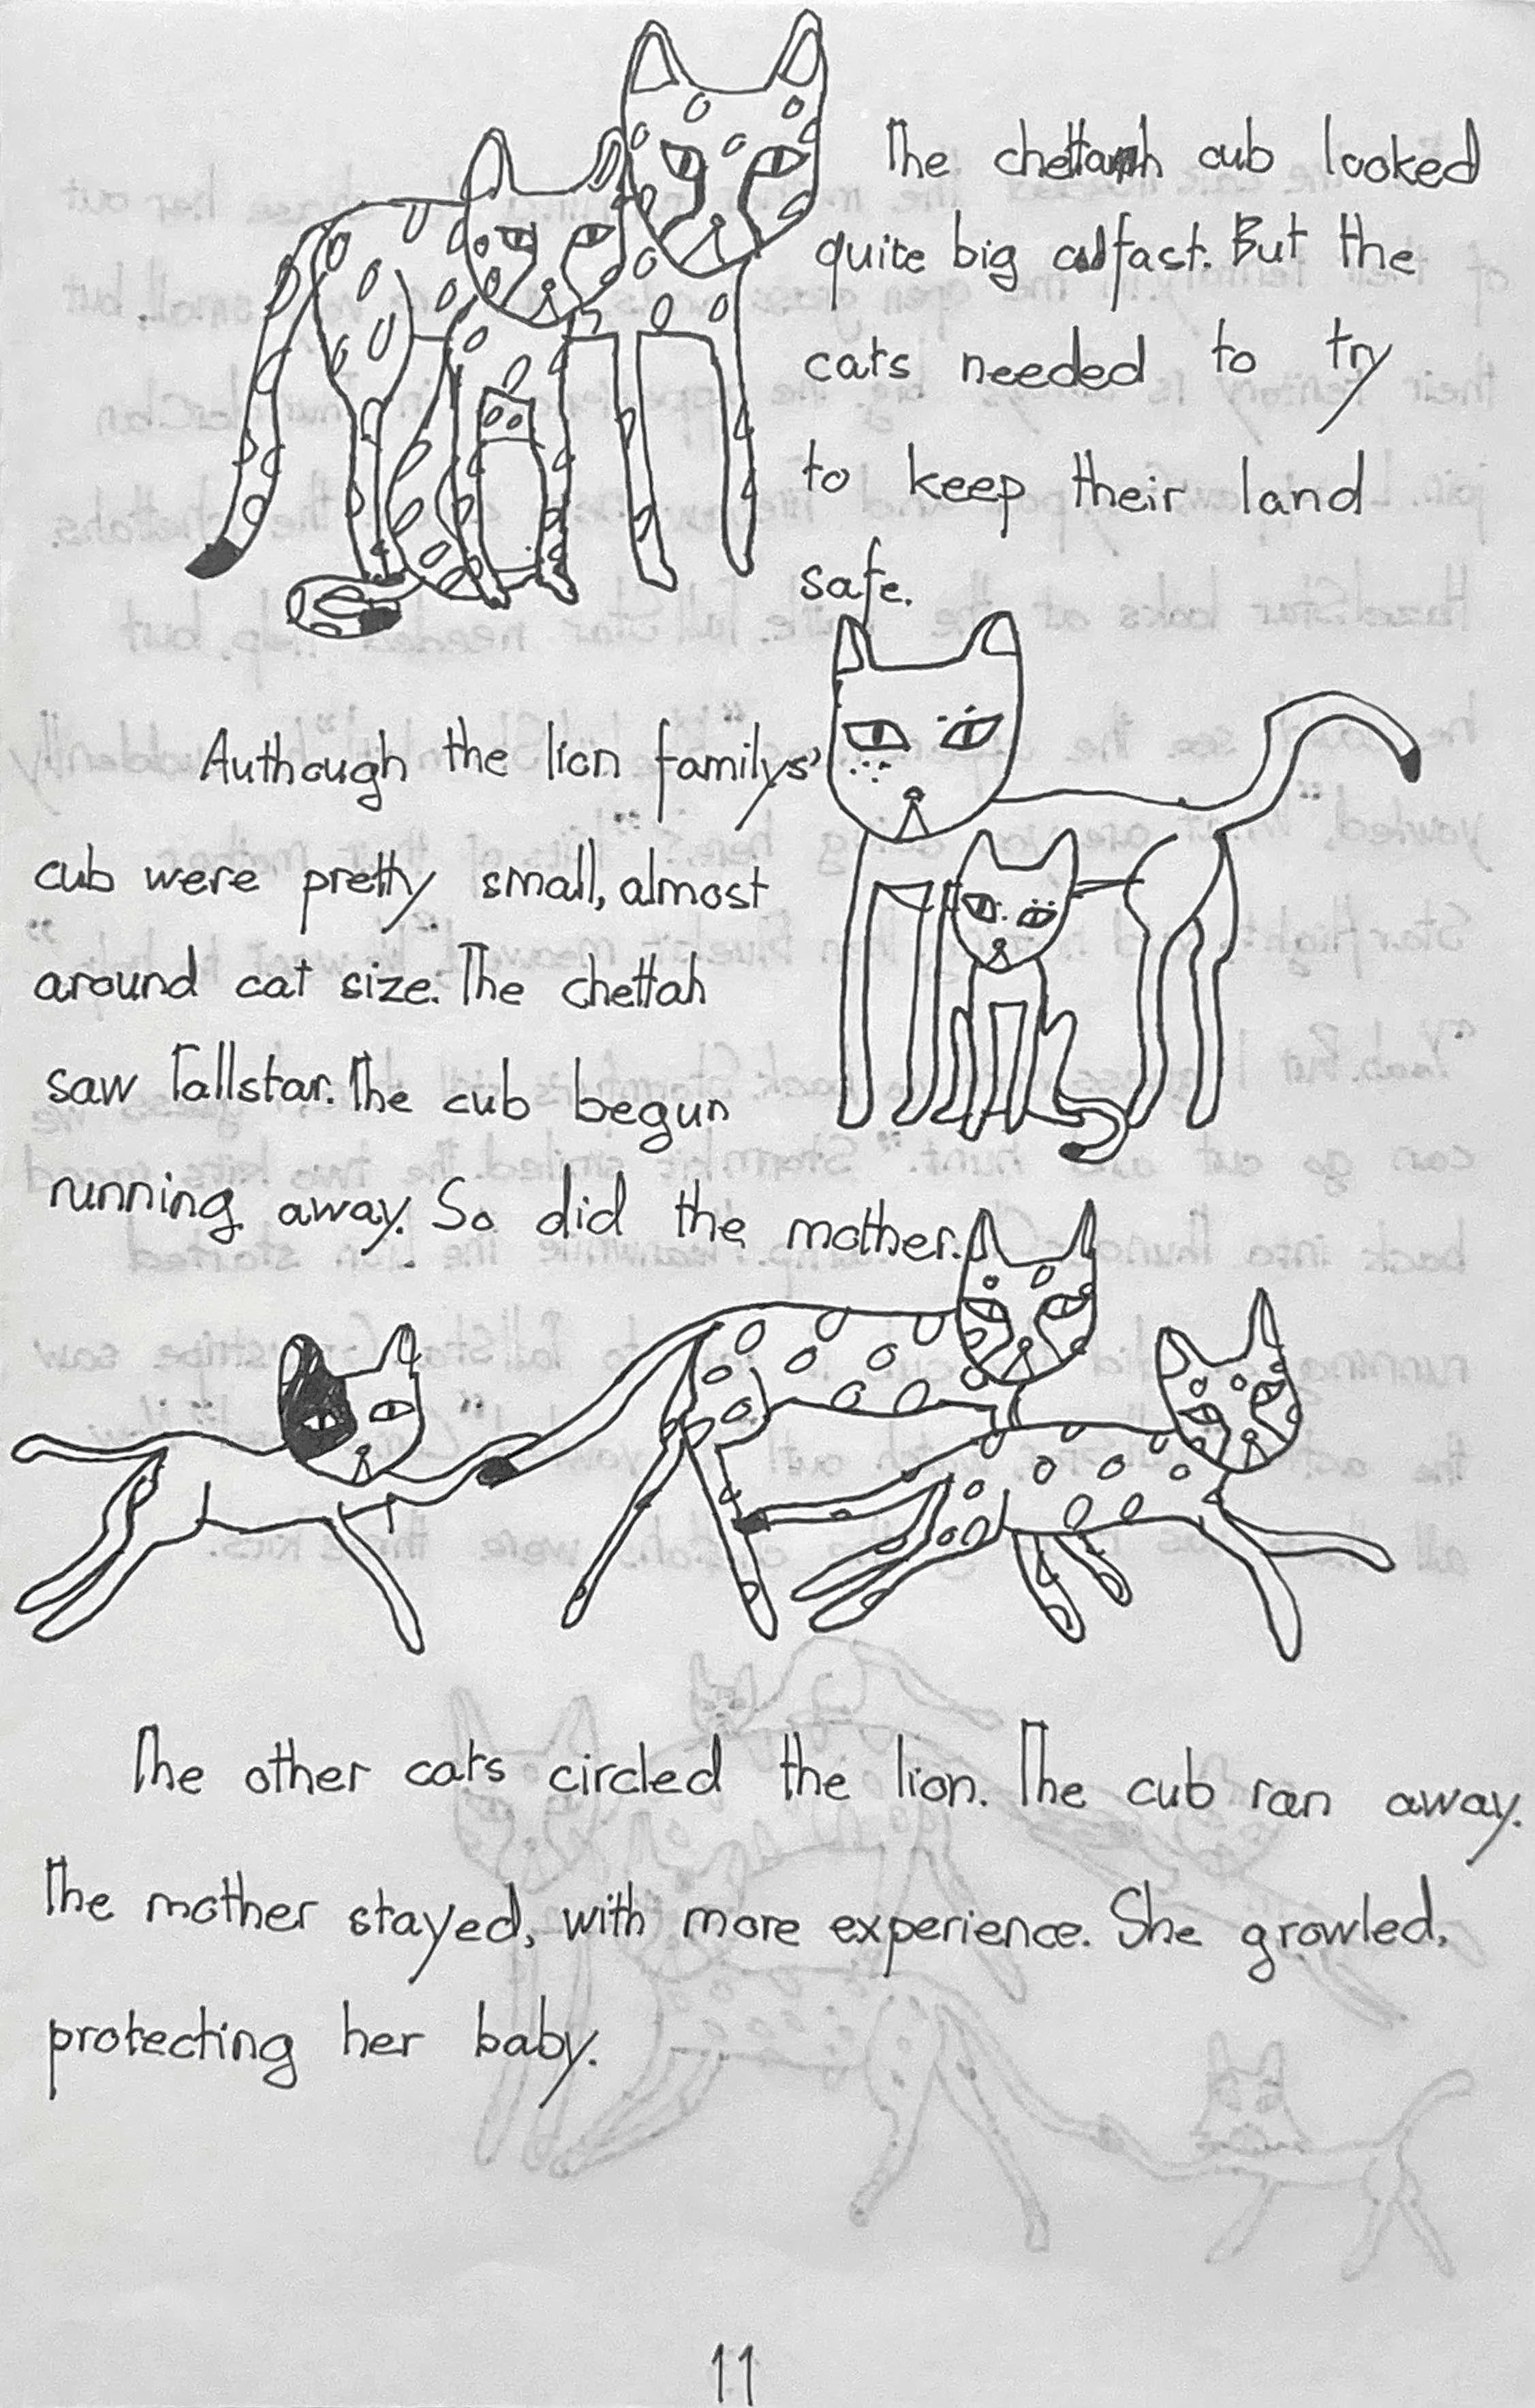 The chettah cub looked
quite big and fast. But the
cats needed to try
to keep their land
safe.
Authough the lion familys'
cub were pretty small, almost
around cat size. The chettah
saw Tallstar. The cub begun
running away. So did the mother.
The other cats circled the lion. The cub ran away.
The mother stayed, with more experience. She growled,
protecting her baby.
11